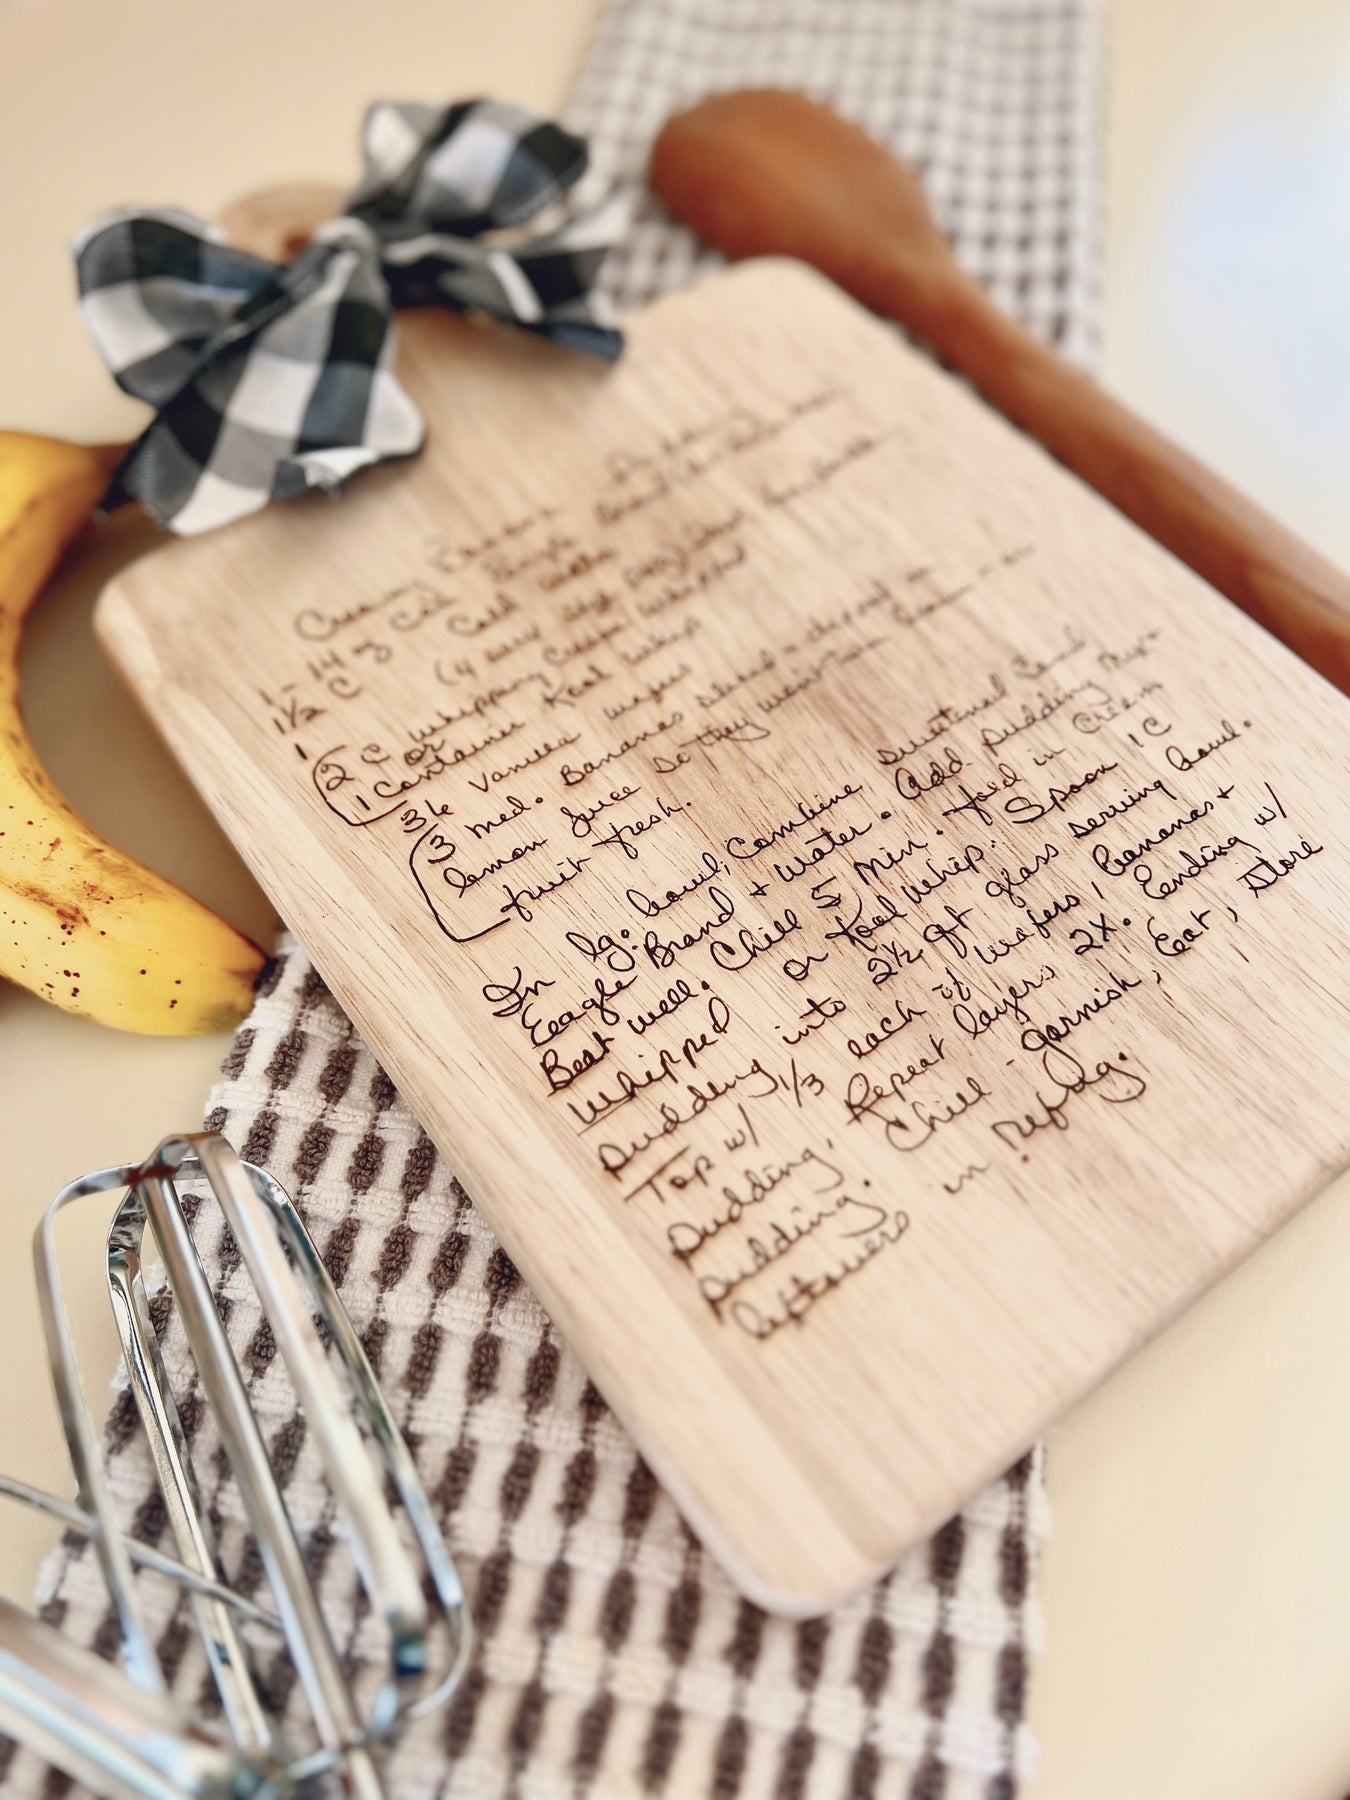 Creamy Banana Pudding
1 - 14 oz can Eagle Brand
1 1/2 C Cold Water
1 (4 serv size pkg) Inst
2 C whipping Cream whipped
or
1 Container Kool whip
36 Vanilla wafers
3 med. Bananas sliced - dipped in
lemon juice so they
fruit fresh.
In lg. bowl, combine sweetened Cond
Eagle Brand + water. Add pudding Mix +
Beat well. Chill 5 Min. fold in Cream
Whipped or Kool Whip. Spoon 1 C
pudding into 2 1/2 qt glass serving bowl.
Top w/ 1/3 each of wafers, bananas +
pudding. Repeat layers 2X. Ending w/
pudding. Chill - garnish, Eat, Store
leftovers in refrig.